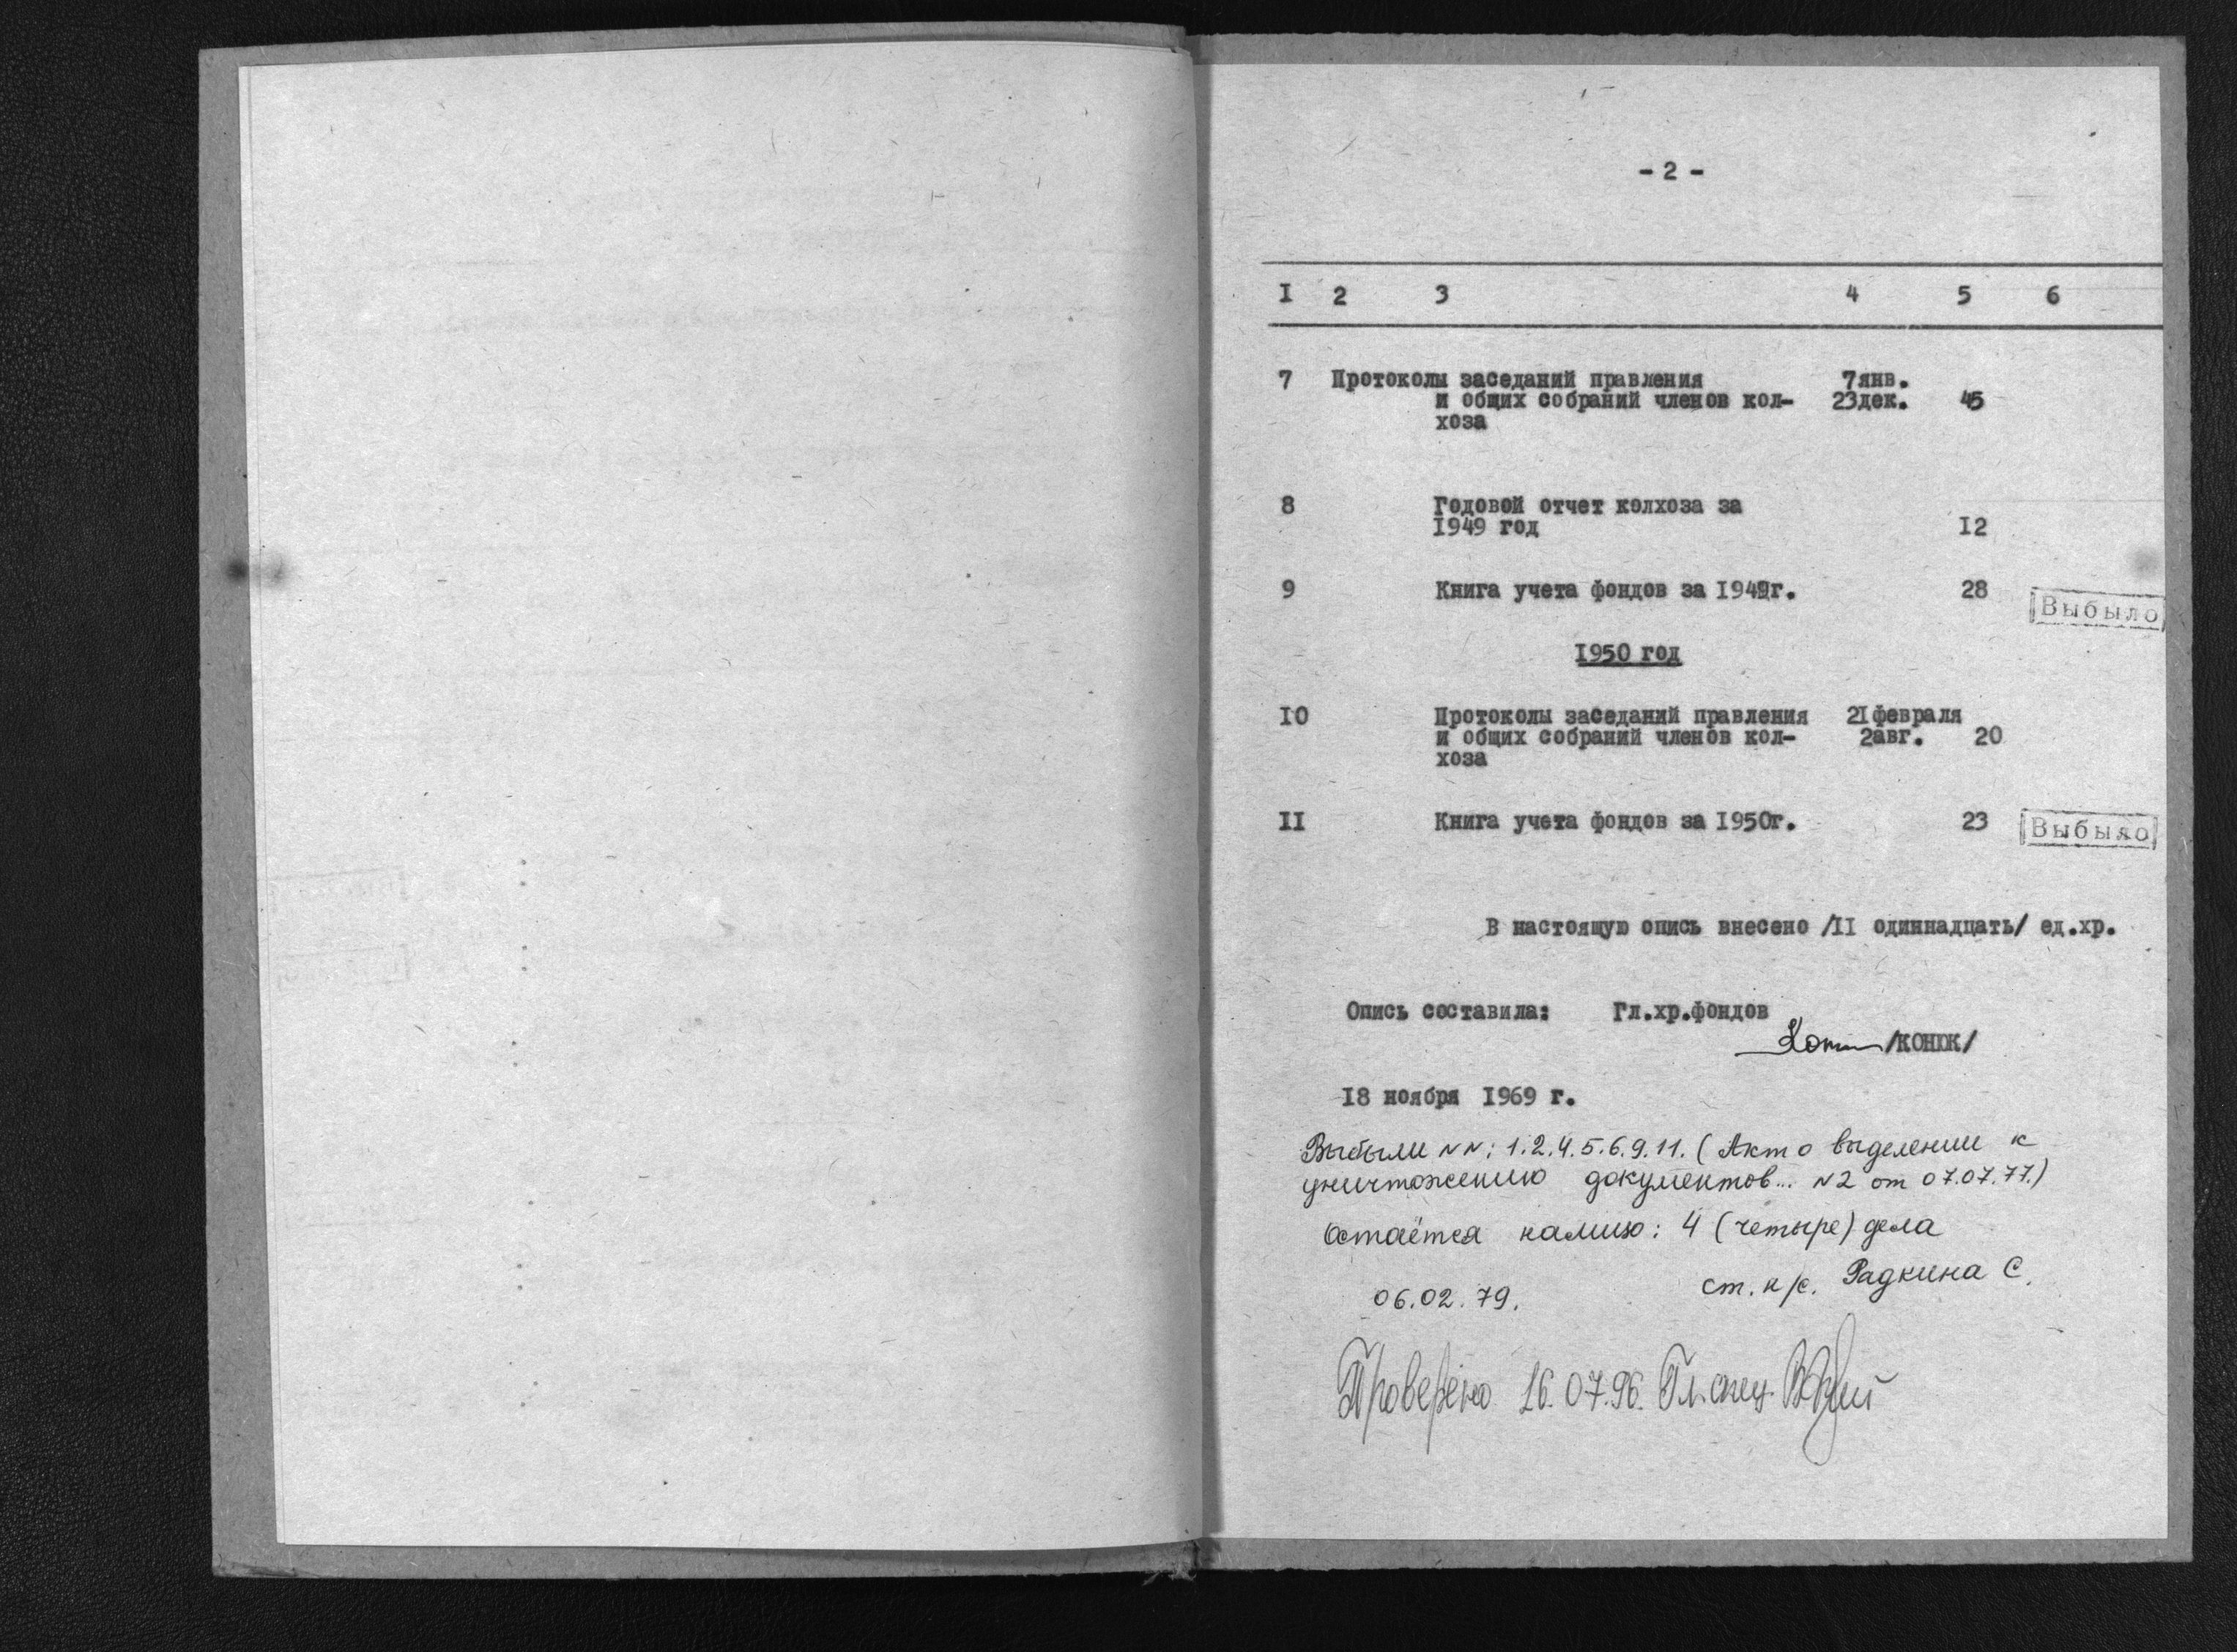 - 2 -
I 2 3 4 5 6
7 Протоколы заседаний правления 7янв.
и общих собраний членов кол- 23дек. 45
хоза
8 Годовой отчет колхоза за
1949 год 12
9 Книга учета фондов за 1949г. 28
Выбыло
1950 год
10 Протоколы заседаний правления 21февраля
и общих собраний членов кол- 2авг. 20
хоза
II Книга учета фондов за 1950г. 23 Выбыло
В настоящую опись внесено /II одиннадцать/ ед.хр.
Опись составила: Гл.хр.фондов
/КОНЮК/
18 ноября 1969 г.
Выбыли NN: 1.2.4.5.6.9.11. (Акт о выделении к
уничтожению документов... N2 от 07.07.77.)
Остаётся налицо: 4 (четыре) дела
06.02.79. ст. н/с. Радкина С.
Проверено 16.07.96. Гл. спец.